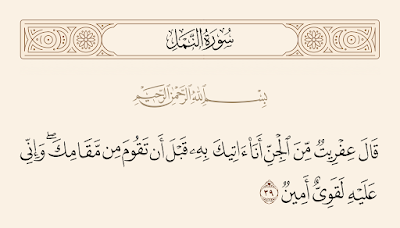 سُورَةُ النَّمْلِ
بِسْمِ اللَّهِ الرَّحْمَٰنِ الرَّحِيمِ
قَالَ عِفْرِيتٌ مِّنَ ٱلْجِنِّ أَنَا۠ ءَاتِيكَ بِهِۦ قَبْلَ أَن تَقُومَ مِن مَّقَامِكَ ۖ وَإِنِّى
عَلَيْهِ لَقَوِىٌّ أَمِينٌ ٣٩